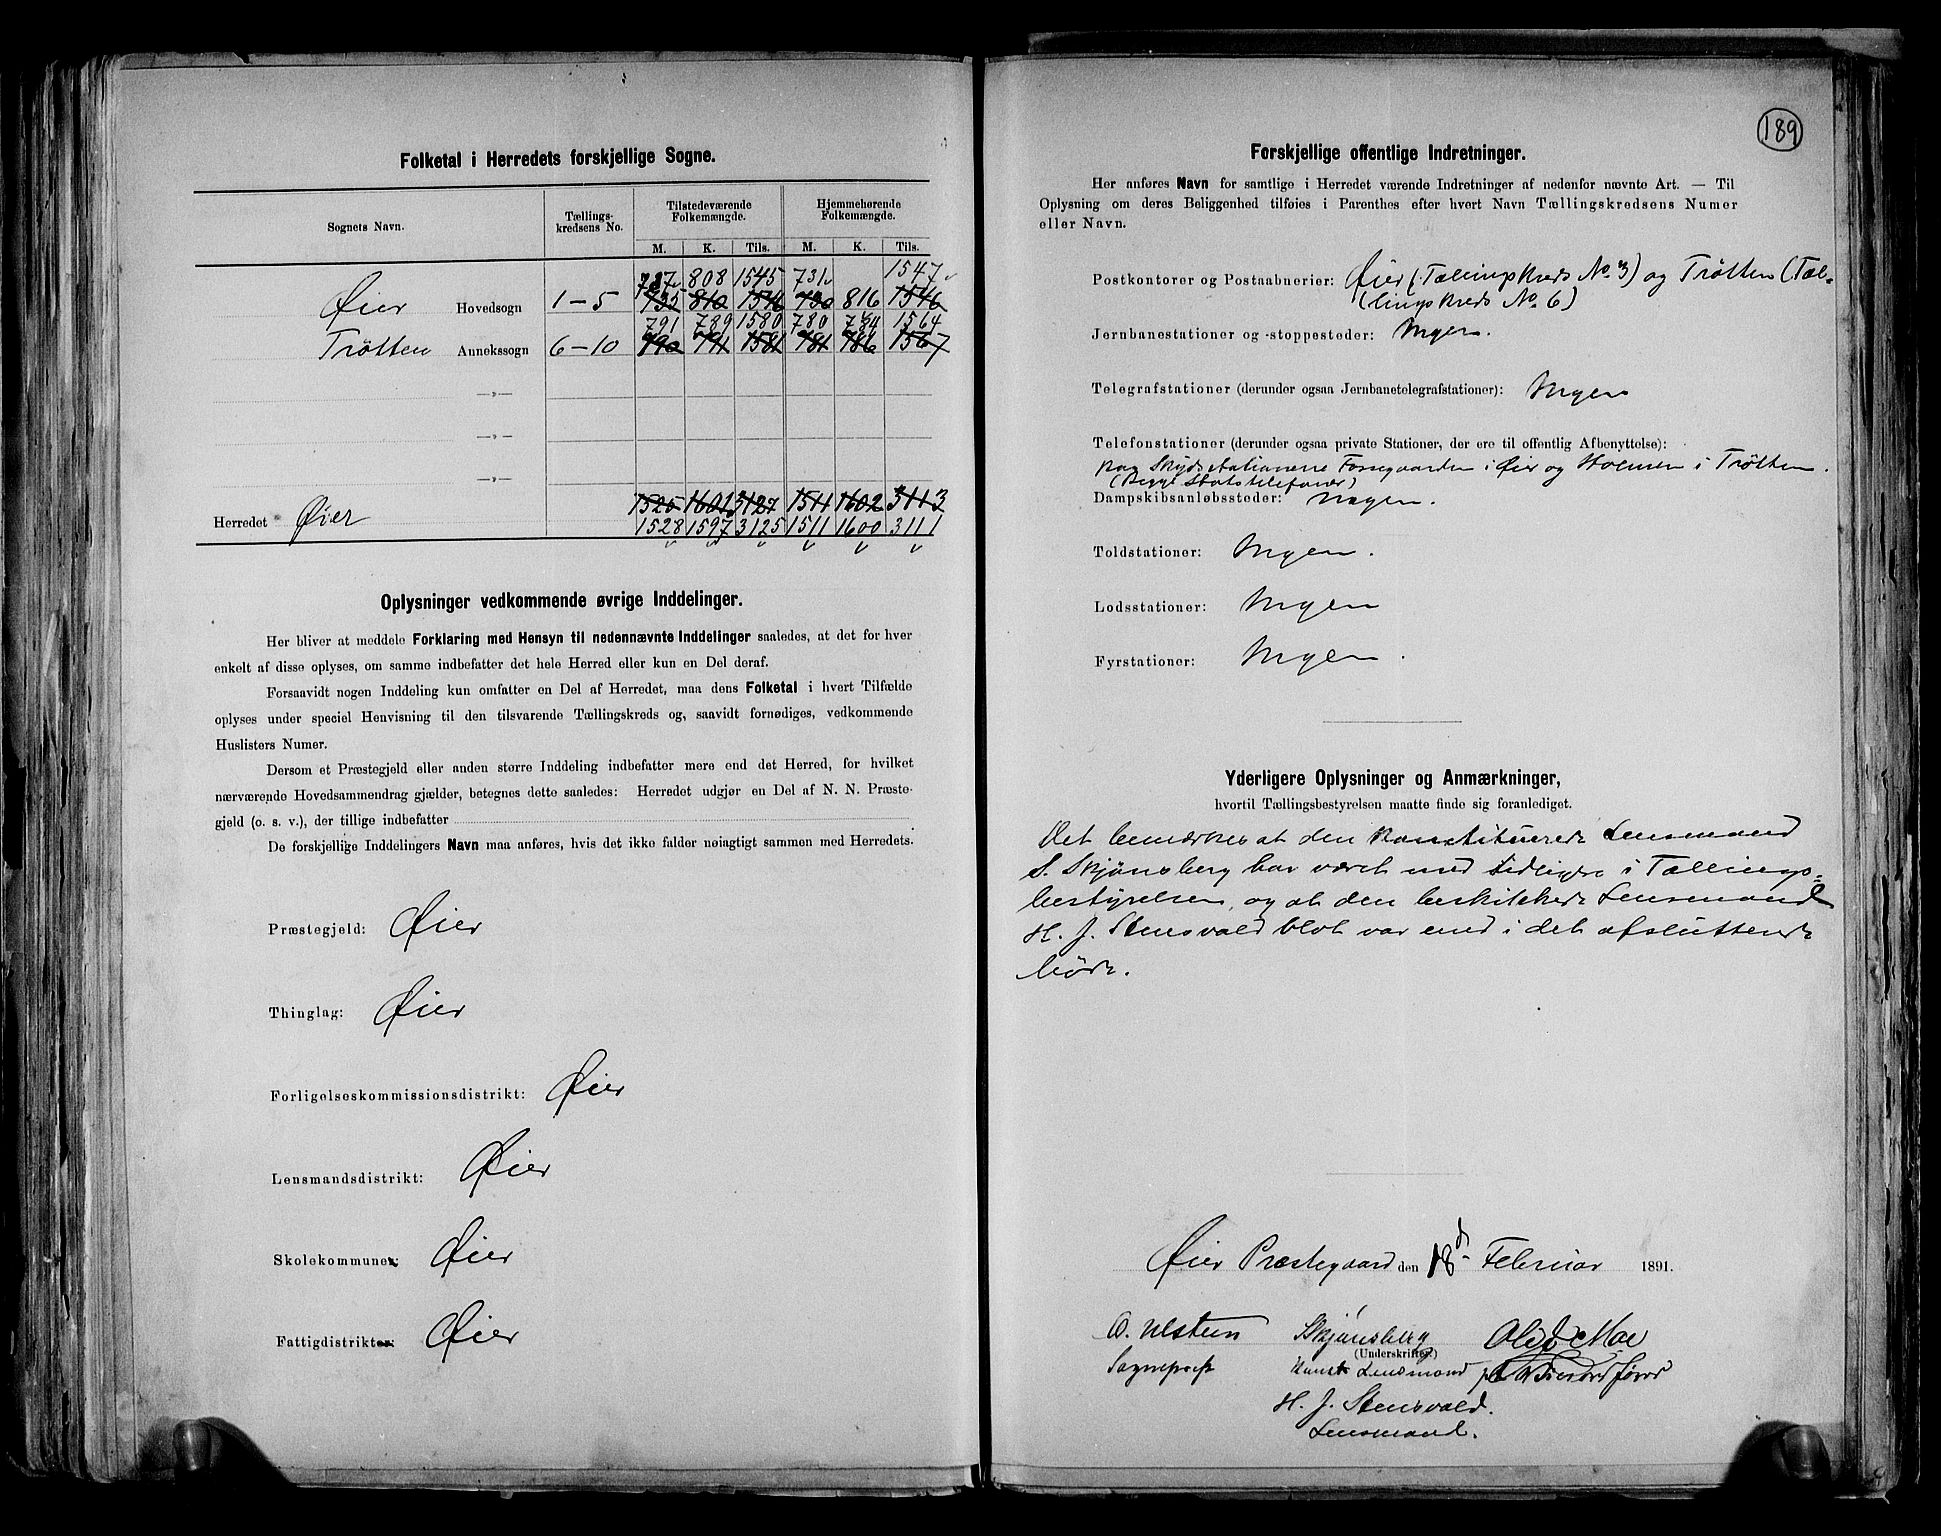 Folketal i Herredets forskjellige Sogne.
Sognets Navn.
Tællings-
kredsens No.
Tilstedeværende
Folkemængde.
Hjemmehørende
Folkemængde.
M. K. Tils. M. K. Tils.
737 808 1545 731 1547
Øier Hovedsogn 1-5 735 810 1545 730 816 1546
791 789 1580 780 784 1564
Trötten Annekssogn 6-10 790 791 1581 781 786 1567
—„—
—„—
—„—
1525 1601 3127 1511 1602 3113
Herredet Øier
1528 1597 3125 1511 1600 3111
Oplysninger vedkommende øvrige Inddelinger.
Her bliver at meddele Forklaring med Hensyn til nedennævnte Inddelinger saaledes, at det for hver
enkelt af disse oplyses, om samme indbefatter det hele Herred eller kun en Del deraf.
Forsaavidt nogen Inddeling kun omfatter en Del af Herredet, maa dens Folketal i hvert Tilfælde
oplyses under speciel Henvisning til den tilsvarende Tællingskreds og, saavidt fornødiges, vedkommende
Huslisters Numer.
Dersom et Præstegjeld eller anden større Inddeling indbefatter mere end det Herred, for hvilket
nærværende Hovedsammendrag gjælder, betegnes dette saaledes: Herredet udgjør en Del af N. N. Præste-
gjeld (o. s. v.), der tillige indbefatter
De forskjellige Inddelingers Navn maa anføres, hvis det ikke falder nøiagtigt sammen med Herredets.
Præstegjeld: Øier
Thinglag: Øier
Forligelseskommissionsdistrikt: Øier
Lensmandsdistrikt: Øier
Skolekommune: Øier
Fattigdistrikter: Øier
189
Forskjellige offentlige Indretninger.
Her anføres Navn for samtlige i Herredet værende Indretninger af nedenfor nævnte Art. — Til
Oplysning om deres Beliggenhed tilføies i Parenthes efter hvert Navn Tællingskredsens Numer
eller Navn.
Postkontorer og Postaabnerier: Øier (Tællingskreds No. 3) og Trötten (Tæl-
lingskreds No. 6)
Jernbanestationer og -stoppesteder: Ingen.
Telegrafstationer (derunder ogsaa Jernbanetelegrafstationer): Ingen
Telefonstationer (derunder ogsaa private Stationer, der ere til offentlig Afbenyttelse):
paa Skydsstationerne Fossegaarden i Øier og Holmen i Trötten.
(Begge Statstelefoner)
Dampskibsanløbssteder: Ingen.
Toldstationer: Ingen.
Lodsstationer: Ingen
Fyrstationer: Ingen.
Yderligere Oplysninger og Anmærkninger,
hvortil Tællingsbestyrelsen maatte finde sig foranlediget.
Det bemærkes at den konstituerede Lensmand
S. Skjönsberg har været med tidligere i Tællings-
bestyrelsen, og at den beskikkede Lensmand
H. J. Stensvald blot var med i det afsluttende
Möde.
Øier Præstegaard den 18d Februar 1891.
O. Ulstein Skjönsberg Olef Moe
(Underskrifter)
Sogneprest Konst. Lensmand
H. J. Stensvald.
Lensmand.